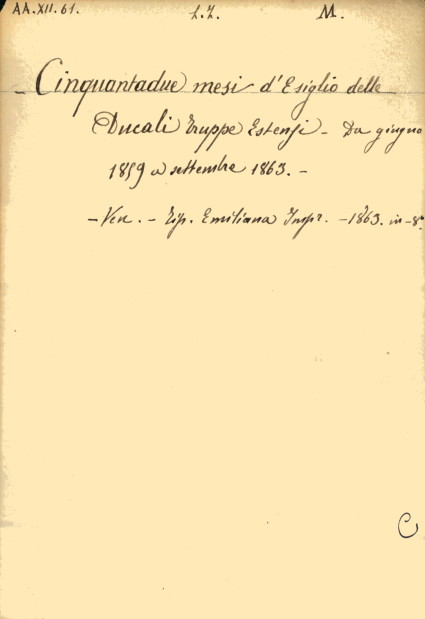 AA.XII.61. L.Z. M.
Cinquantadue mesi d'Esiglio delle
Ducali Truppe Estensi - Da giugno
1859 a settembre 1863. -
- Ven. - Tip. Emiliana Impr. - 1863. in-8°.
C